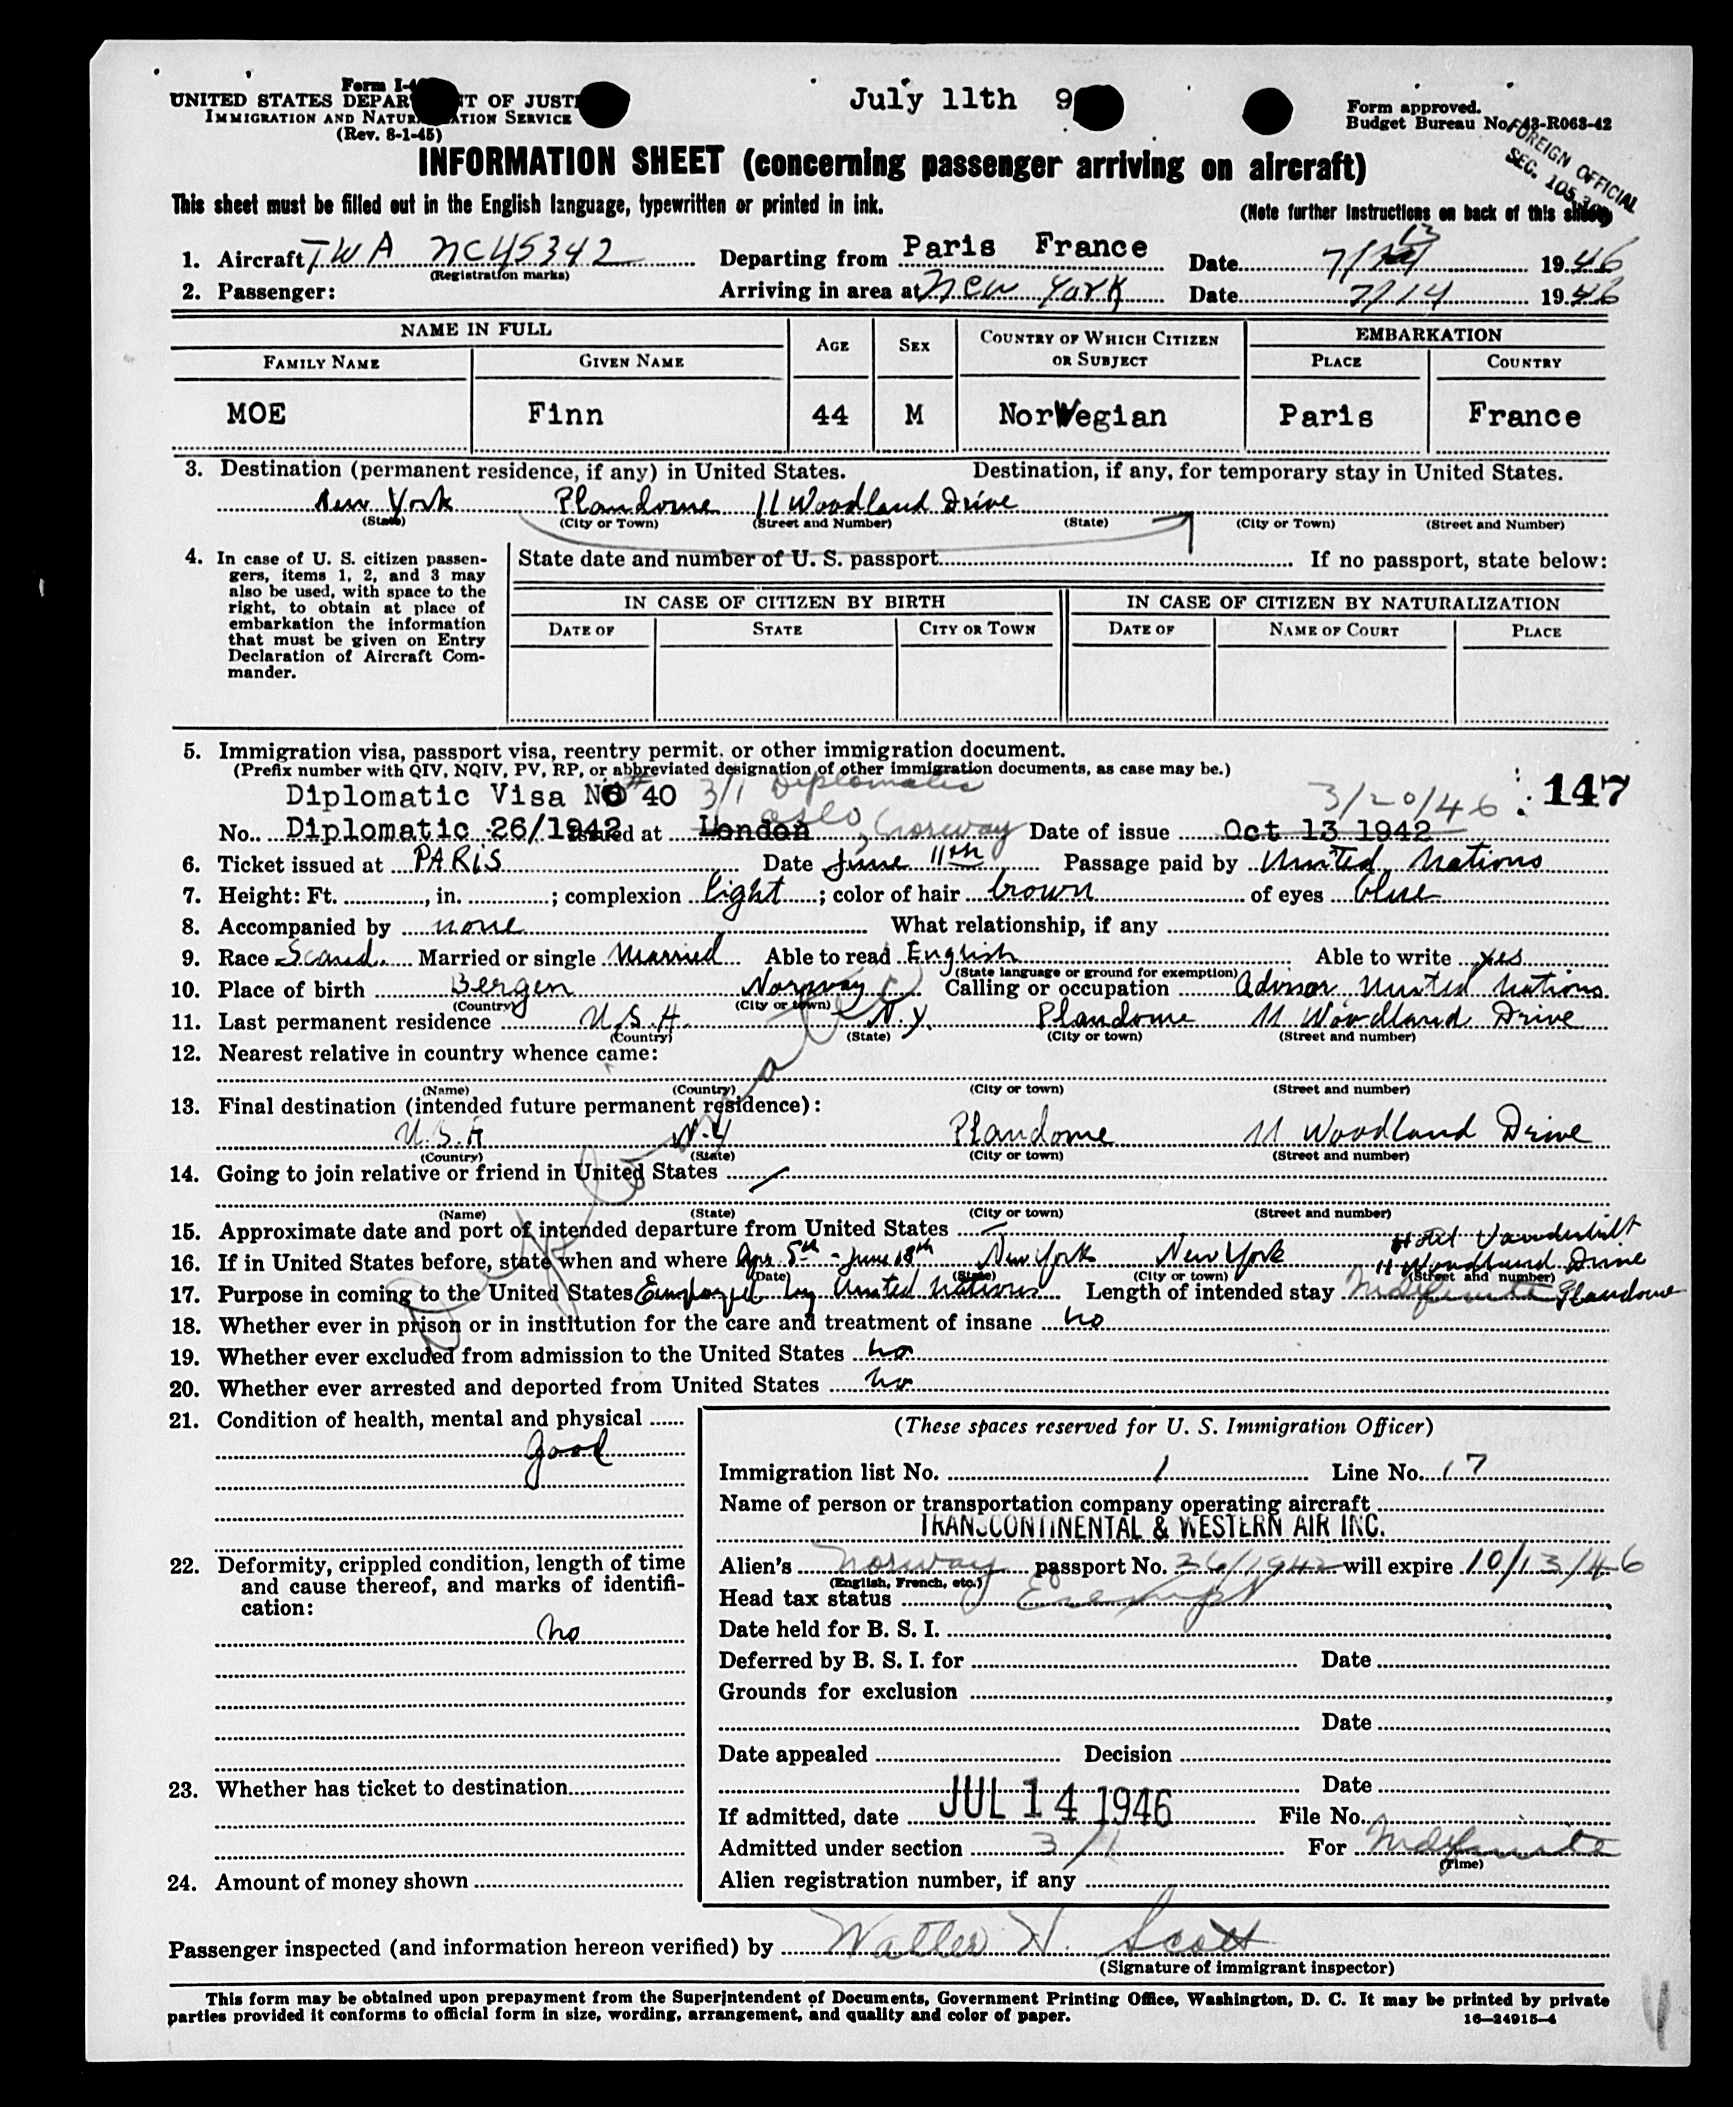 Form I-4
UNITED STATES DEPAR T OF JUST
IMMIGRATION AND NATUR ATION SERVICE
(Rev. 8-1-45)
July 11th 9
Form approved.
Budget Bureau No. 43-R063-42
FOREIGN OFFICIAL
SEC. 105.3
INFORMATION SHEET (concerning passenger arriving on aircraft)
This sheet must be filled out in the English language, typewritten or printed in ink.
(Note further instructions on back of this sheet)
1. Aircraft TWA NC45342 Departing from Paris France Date 7/13 1946
(Registration marks)
2. Passenger: Arriving in area at New York Date 7/14 1946
NAME IN FULL AGE SEX COUNTRY OF WHICH CITIZEN OR SUBJECT EMBARKATION
FAMILY NAME GIVEN NAME PLACE COUNTRY
MOE Finn 44 M NorWegian Paris France
3. Destination (permanent residence, if any) in United States. Destination, if any, for temporary stay in United States.
New York Plandome 11 Woodland Drive
(State) (City or Town) (Street and Number) (State) (City or Town) (Street and Number)
4. In case of U. S. citizen passen-
gers, items 1, 2, and 3 may
also be used, with space to the
right, to obtain at place of
embarkation the information
that must be given on Entry
Declaration of Aircraft Com-
mander.
State date and number of U. S. passport If no passport, state below:
IN CASE OF CITIZEN BY BIRTH IN CASE OF CITIZEN BY NATURALIZATION
DATE OF STATE CITY OR TOWN DATE OF NAME OF COURT PLACE
5. Immigration visa, passport visa, reentry permit, or other immigration document.
(Prefix number with QIV, NQIV, PV, RP, or abbreviated designation of other immigration documents, as case may be.)
Diplomatic Visa No # 40 3/1 Diplomatic 3/20/46 147
Oslo, Norway
No. Diplomatic 26/1942 Issued at London Date of issue Oct 13 1942
6. Ticket issued at PARIS Date June 11th Passage paid by United Nations
7. Height: Ft. , in. ; complexion light ; color of hair brown of eyes blue
8. Accompanied by none What relationship, if any
9. Race Scand. Married or single Married Able to read English Able to write yes
(State language or ground for exemption)
10. Place of birth Bergen Norway Calling or occupation Advisor United Nations
(Country) (City or town)
11. Last permanent residence U.S.A. N.Y. Plandome 11 Woodland Drive
(Country) (State) (City or town) (Street and number)
12. Nearest relative in country whence came:
(Name) (Country) (City or town) (Street and number)
13. Final destination (intended future permanent residence):
U.S.A N.Y Plandome 11 Woodland Drive
(Country) (State) (City or town) (Street and number)
14. Going to join relative or friend in United States
(Name) (State) (City or town) (Street and number)
Diplomatic
15. Approximate date and port of intended departure from United States —
Hotel Vanderbilt
16. If in United States before, state when and where Apr. 5th - June 18th New York New York 11 Woodland Drive
(Date) (State) (City or town) (Street and number)
Plandome
17. Purpose in coming to the United States Employed by United Nations Length of intended stay Indefinite
18. Whether ever in prison or in institution for the care and treatment of insane no
19. Whether ever excluded from admission to the United States no
20. Whether ever arrested and deported from United States no
21. Condition of health, mental and physical
good
22. Deformity, crippled condition, length of time
and cause thereof, and marks of identifi-
cation:
no
23. Whether has ticket to destination
24. Amount of money shown
(These spaces reserved for U. S. Immigration Officer)
Immigration list No. 1 Line No. 17
Name of person or transportation company operating aircraft
TRANSCONTINENTAL & WESTERN AIR INC.
Alien's Norway passport No. 26/1942 will expire 10/13/46
(English, French, etc.)
Head tax status Exempt
Date held for B. S. I.
Deferred by B. S. I. for Date
Grounds for exclusion
Date
Date appealed Decision
Date
If admitted, date JUL 14 1946 File No.
Admitted under section 3/1 For Indefinite
(Time)
Alien registration number, if any
Passenger inspected (and information hereon verified) by Walter H. Scott
(Signature of immigrant inspector)
This form may be obtained upon prepayment from the Superintendent of Documents, Government Printing Office, Washington, D. C. It may be printed by private
parties provided it conforms to official form in size, wording, arrangement, and quality and color of paper.
16—24915-4